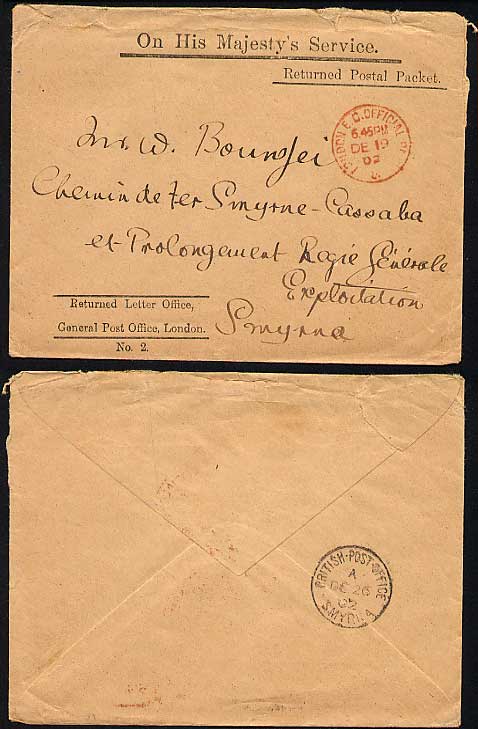 On His Majesty's Service.
Returned Postal Packet.
LONDON E.C. OFFICIAL
6.45PM
DE 19
02
Mr W.
Chemin de fer Smyrne-Cassaba
et Prolongement Regie Générale
Exploitation
Smyrna
Returned Letter Office,
General Post Office, London.
No. 2.
BRITISH-POST-OFFICE
A
DE 26
02
SMYRNA